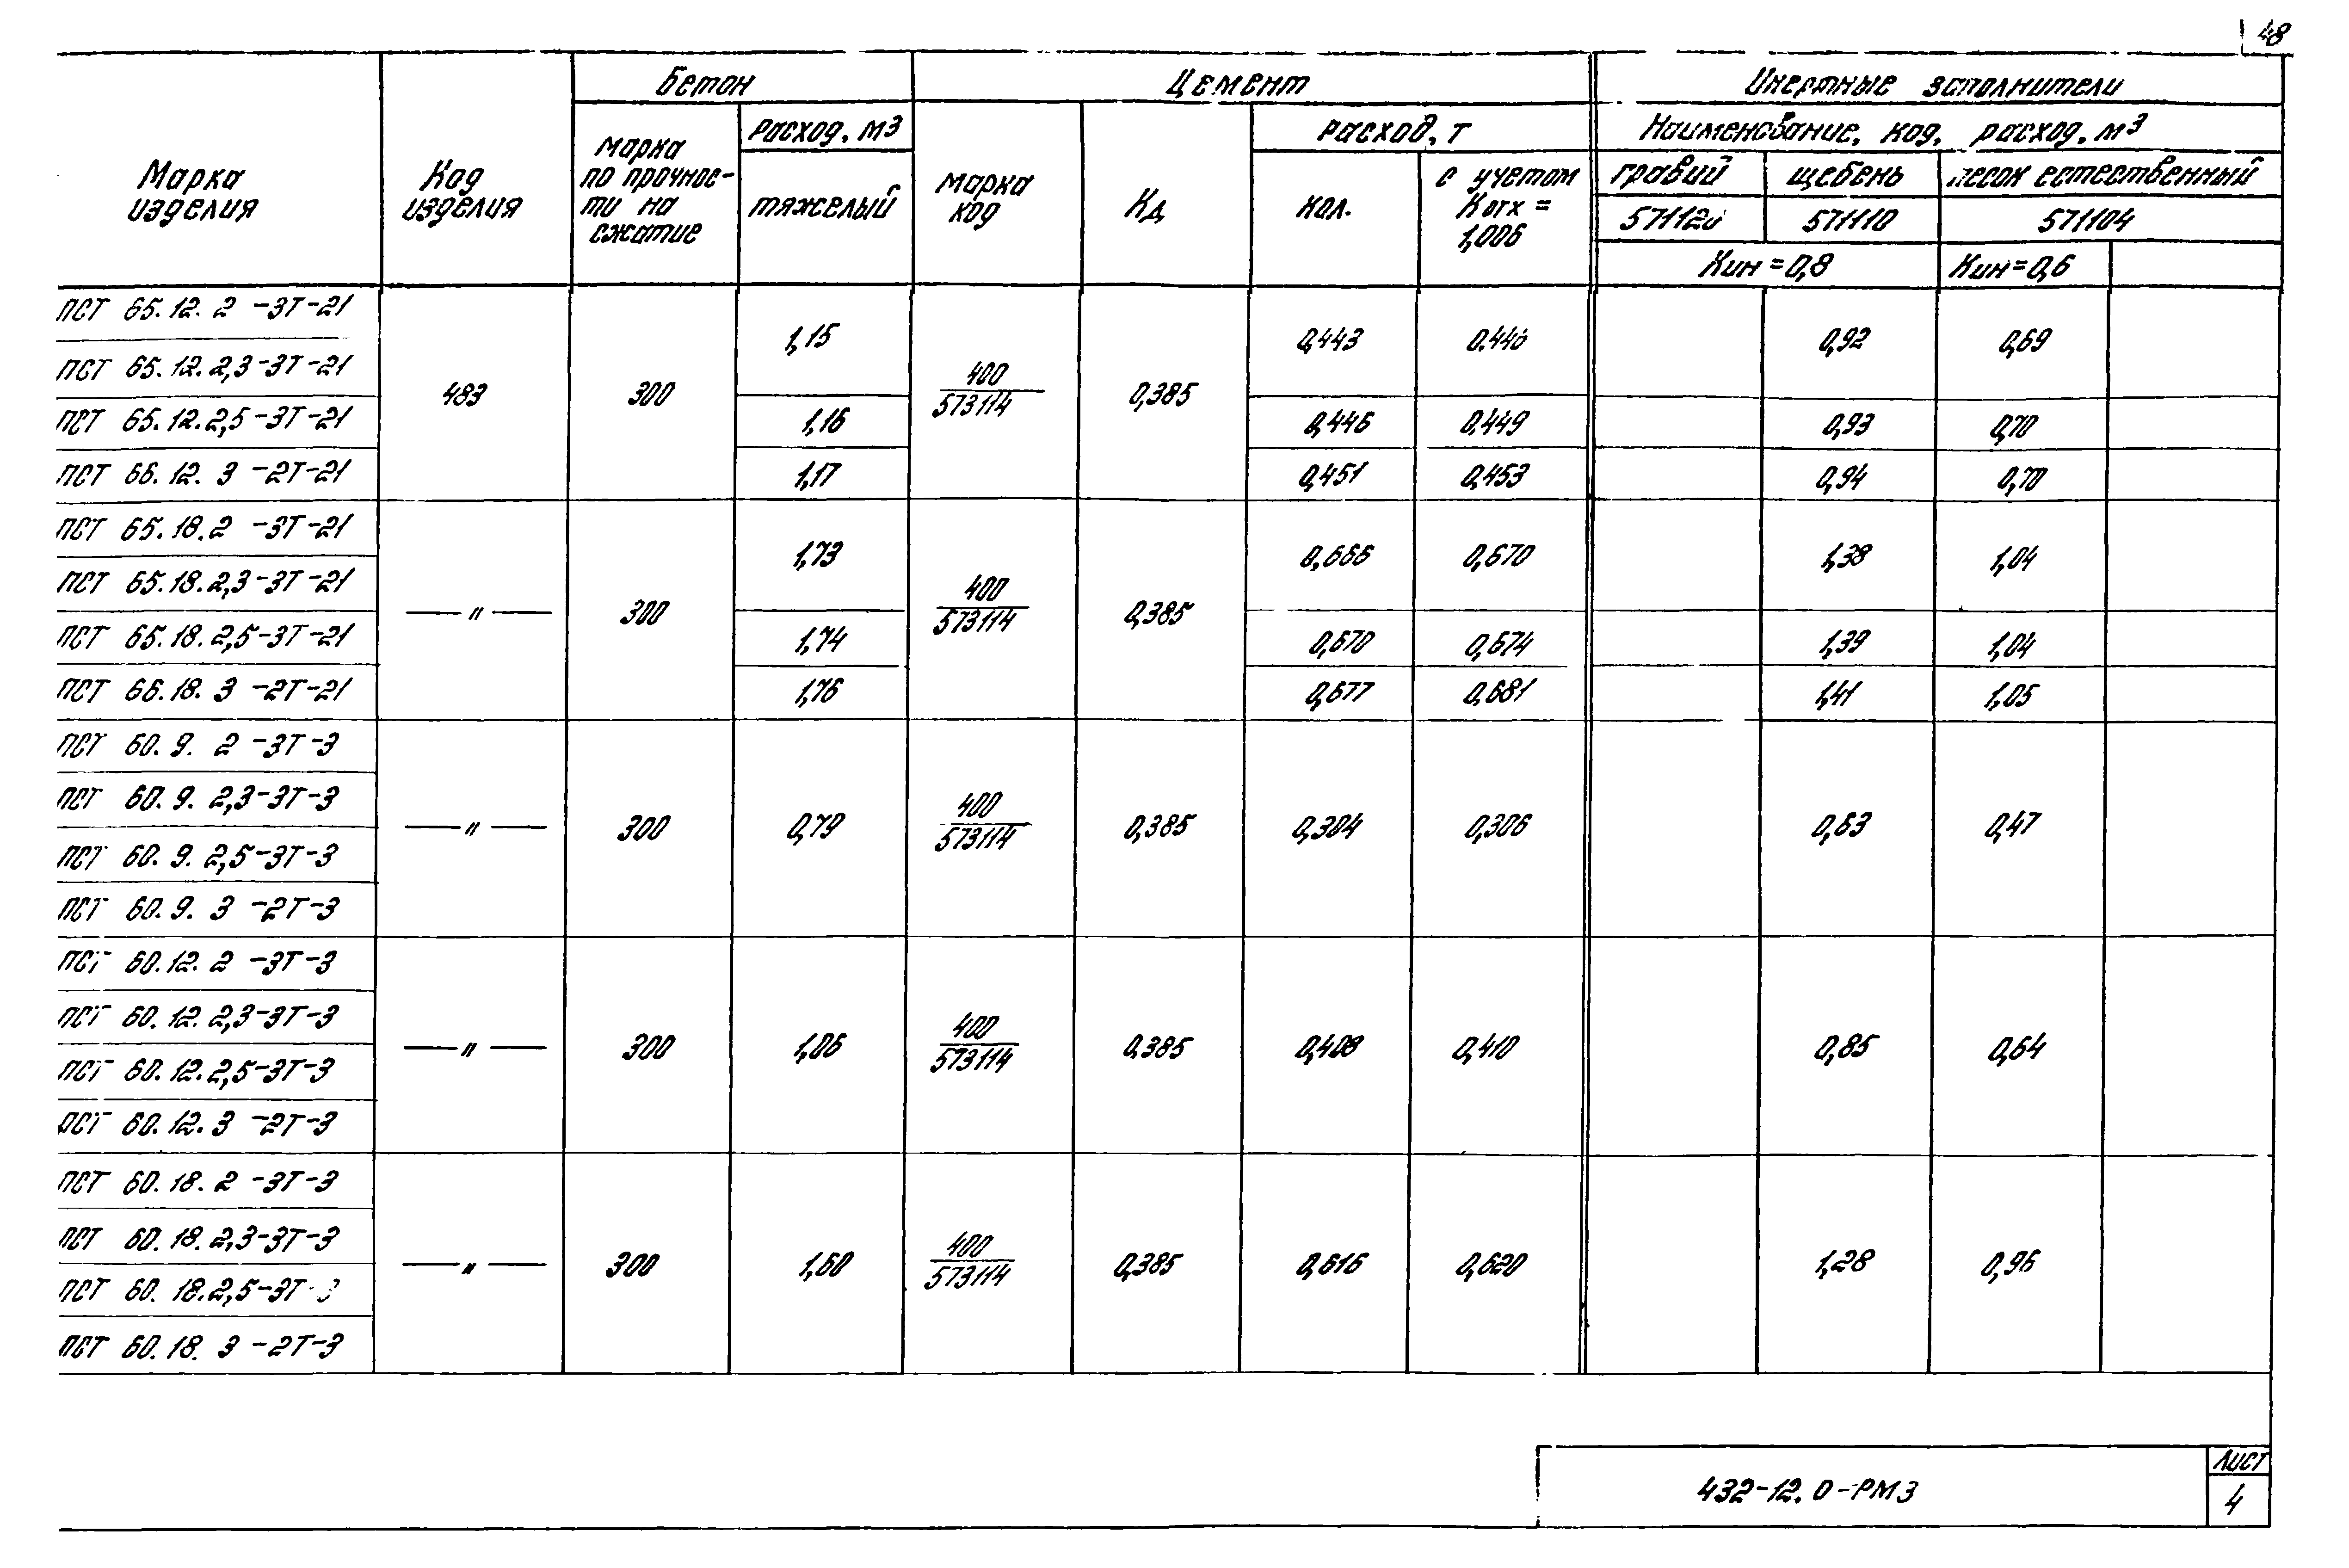 48
Бетон Цемент Инертные заполнители
Марка изделия
Код изделия
марка по прочнос-
ти на сжатие
Расход, м3
тяжелый
марка
код
Кд
Расход, т
кол.
с учетом
Котх =
1,006
Наименование, код, расход, м3
гравий щебень песок естественный
571120 571110 571104
Кин = 0,8 Кин = 0,6
ПСТ 65.12. 2 -3Т-21
ПСТ 65.12.2,3-3Т-21
1,15 0,443 0,446 0,92 0,69
483 300 400 0,385
573114
ПСТ 65.12.2,5-3Т-21 1,16 0,446 0,449 0,93 0,70
ПСТ 66.12. 3 -2Т-21 1,17 0,451 0,453 0,94 0,70
ПСТ 65.18.2 -3Т-21
ПСТ 65.18.2,3-3Т-21
1,73 0,666 0,670 1,38 1,04
—〃— 300 400 0,385
573114
ПСТ 65.18.2,5-3Т-21 1,74 0,670 0,674 1,39 1,04
ПСТ 66.18. 3 -2Т-21 1,76 0,677 0,681 1,41 1,05
ПСТ 60. 9. 2 -3Т-3
ПСТ 60. 9. 2,3-3Т-3
—〃— 300 0,79 400 0,385 0,304 0,306 0,63 0,47
573114
ПСТ 60. 9. 2,5-3Т-3
ПСТ 60. 9. 3 -2Т-3
ПСТ 60.12. 2 -3Т-3
ПСТ 60.12. 2,3-3Т-3
—〃— 300 1,06 400 0,385 0,408 0,410 0,85 0,64
573114
ПСТ 60.12.2,5-3Т-3
ПСТ 60.12.3 -2Т-3
ПСТ 60.18. 2 -3Т-3
ПСТ 60.18.2,3-3Т-3
—〃— 300 1,60 400 0,385 0,616 0,620 1,28 0,96
573114
ПСТ 60. 18.2,5-3Т-3
ПСТ 60.18. 3 -2Т-3
432-12.0-РМ3
Лист
4